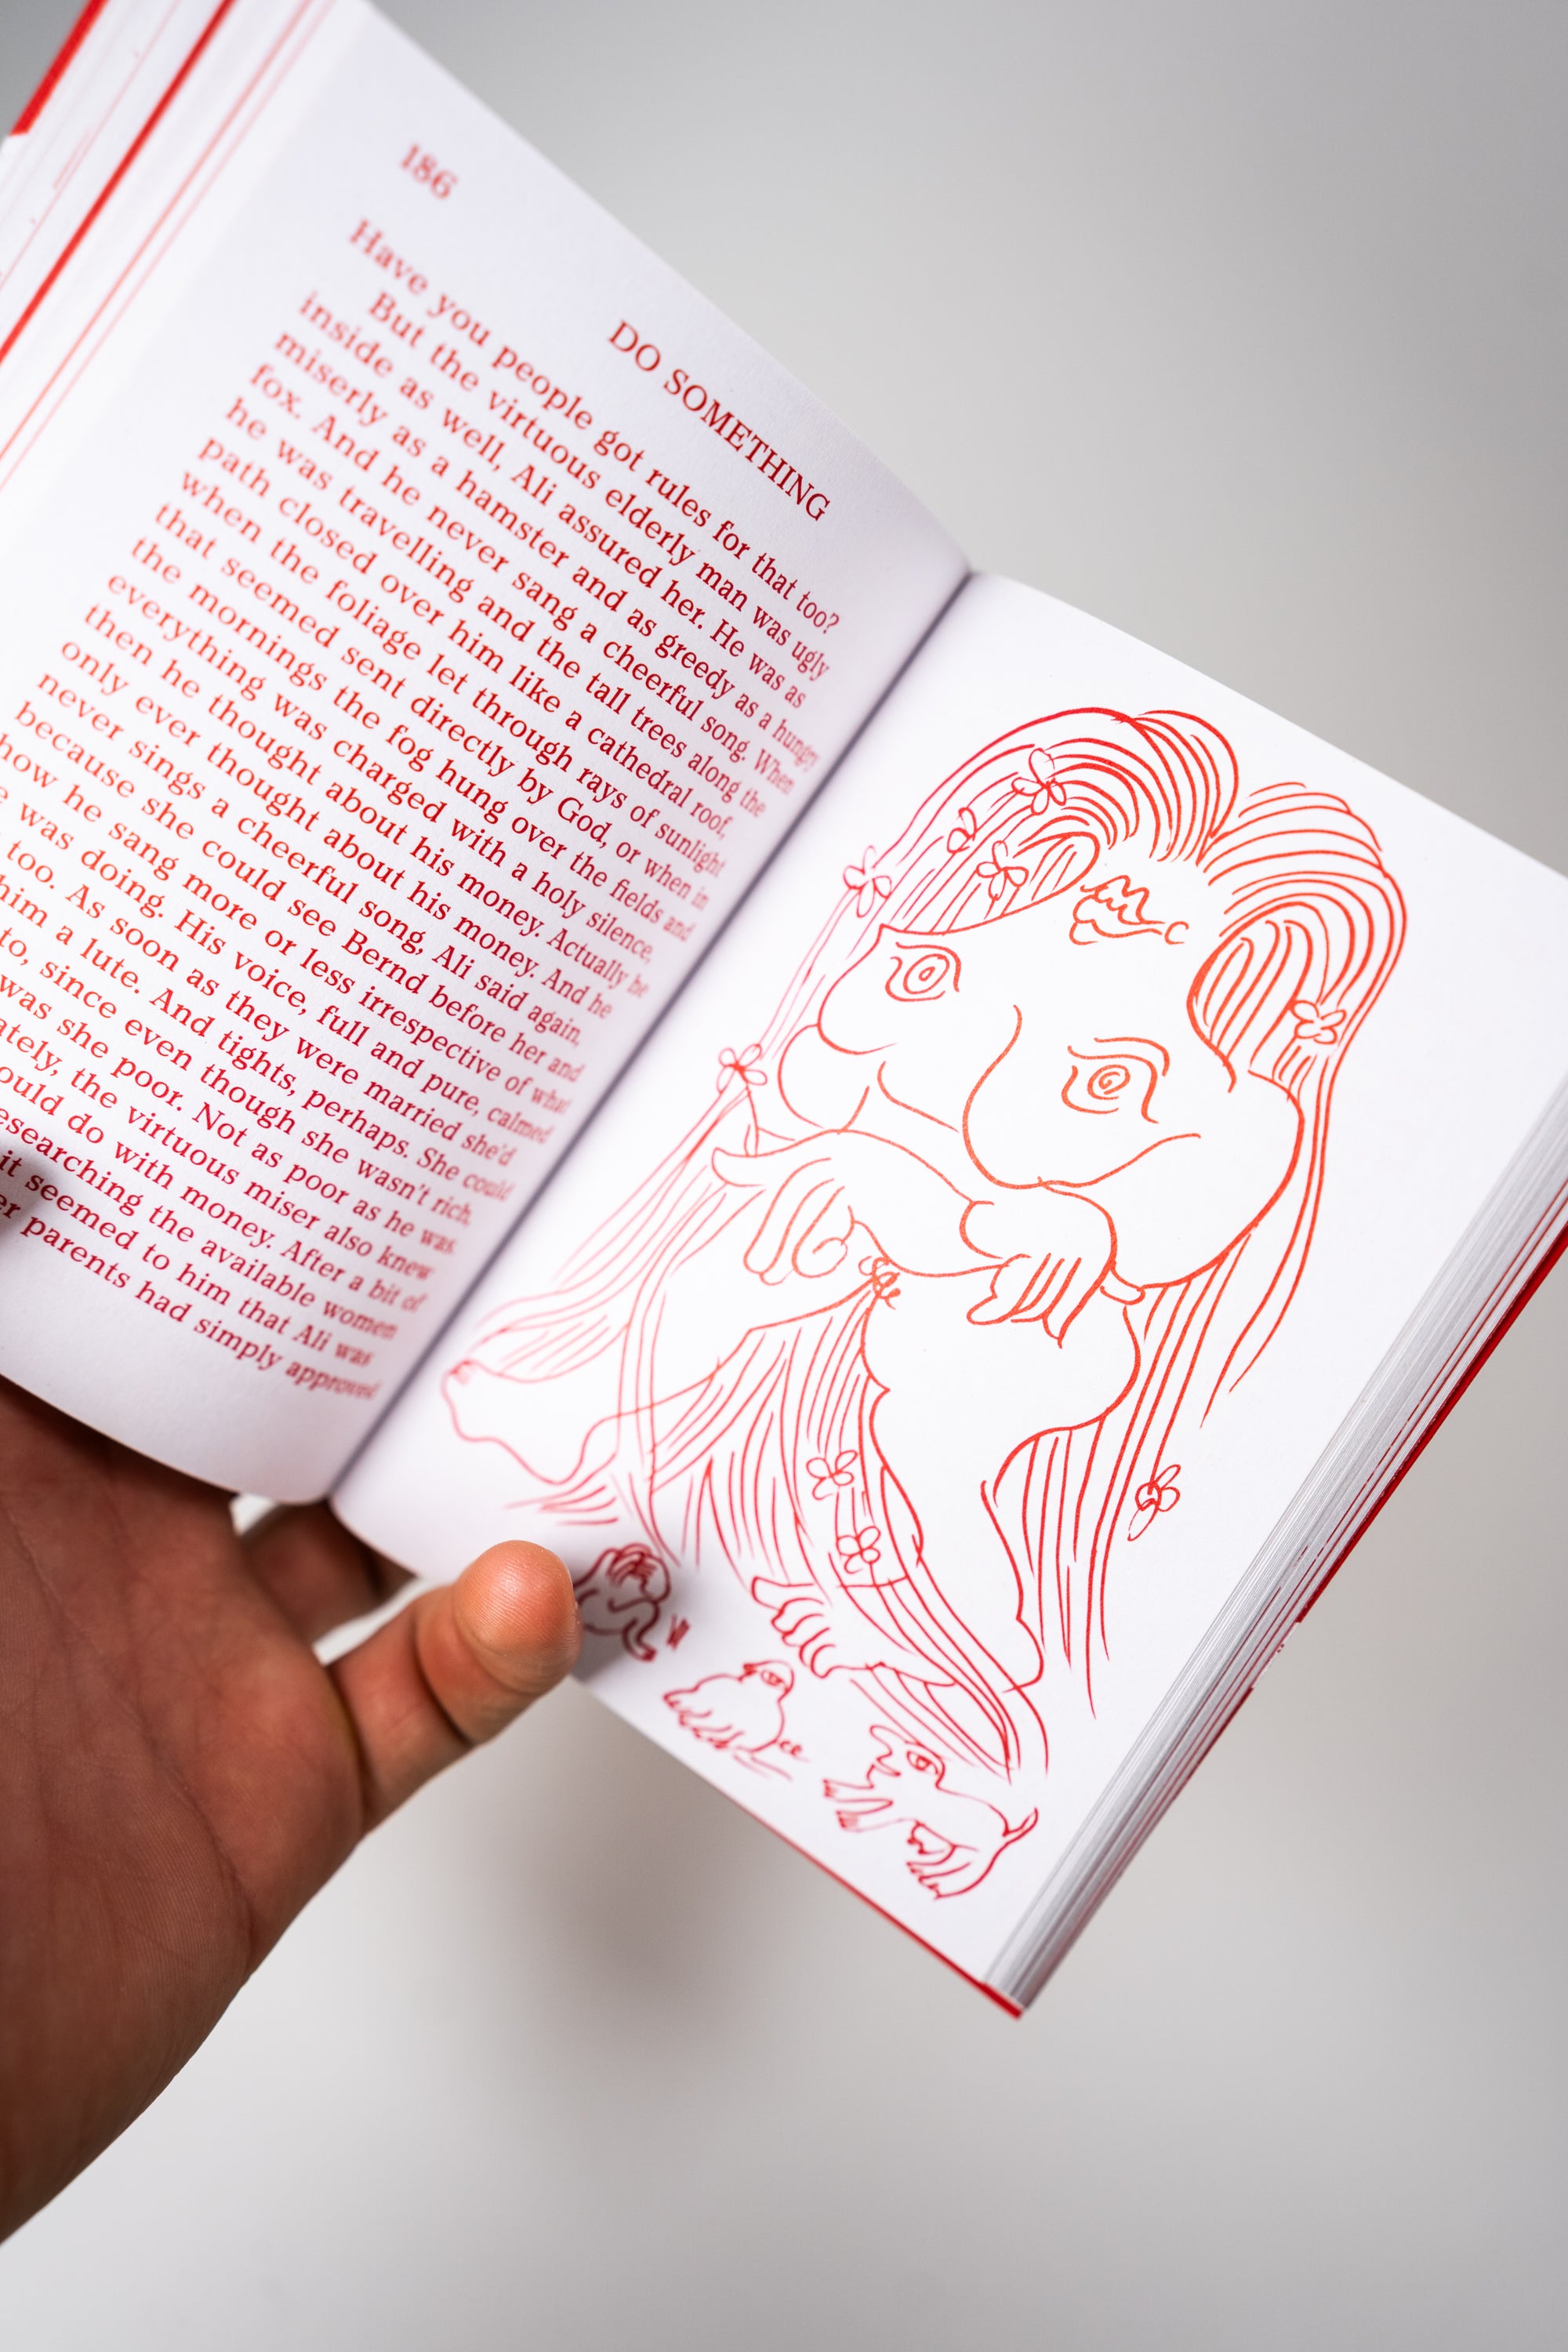 186
DO SOMETHING
Have you people got rules for that too?
But the virtuous elderly man was ugly
inside as well, Ali assured her. He was as
miserly as a hamster and as greedy as a hungry
fox. And he never sang a cheerful song. When
he was travelling and the tall trees along the
path closed over him like a cathedral roof,
when the foliage let through rays of sunlight
that seemed sent directly by God, or when in
the mornings the fog hung over the fields and
everything was charged with a holy silence,
then he thought about his money. Actually he
only ever thought about his money. And he
never sings a cheerful song, Ali said again,
because she could see Bernd before her and
how he sang more or less irrespective of what
was doing. His voice, full and pure, calmed
too. As soon as they were married she'd
him a lute. And tights, perhaps. She could
to, since even though she wasn't rich,
was she poor. Not as poor as he was.
ately, the virtuous miser also knew
ould do with money. After a bit of
esearching the available women
it seemed to him that Ali was
er parents had simply approved